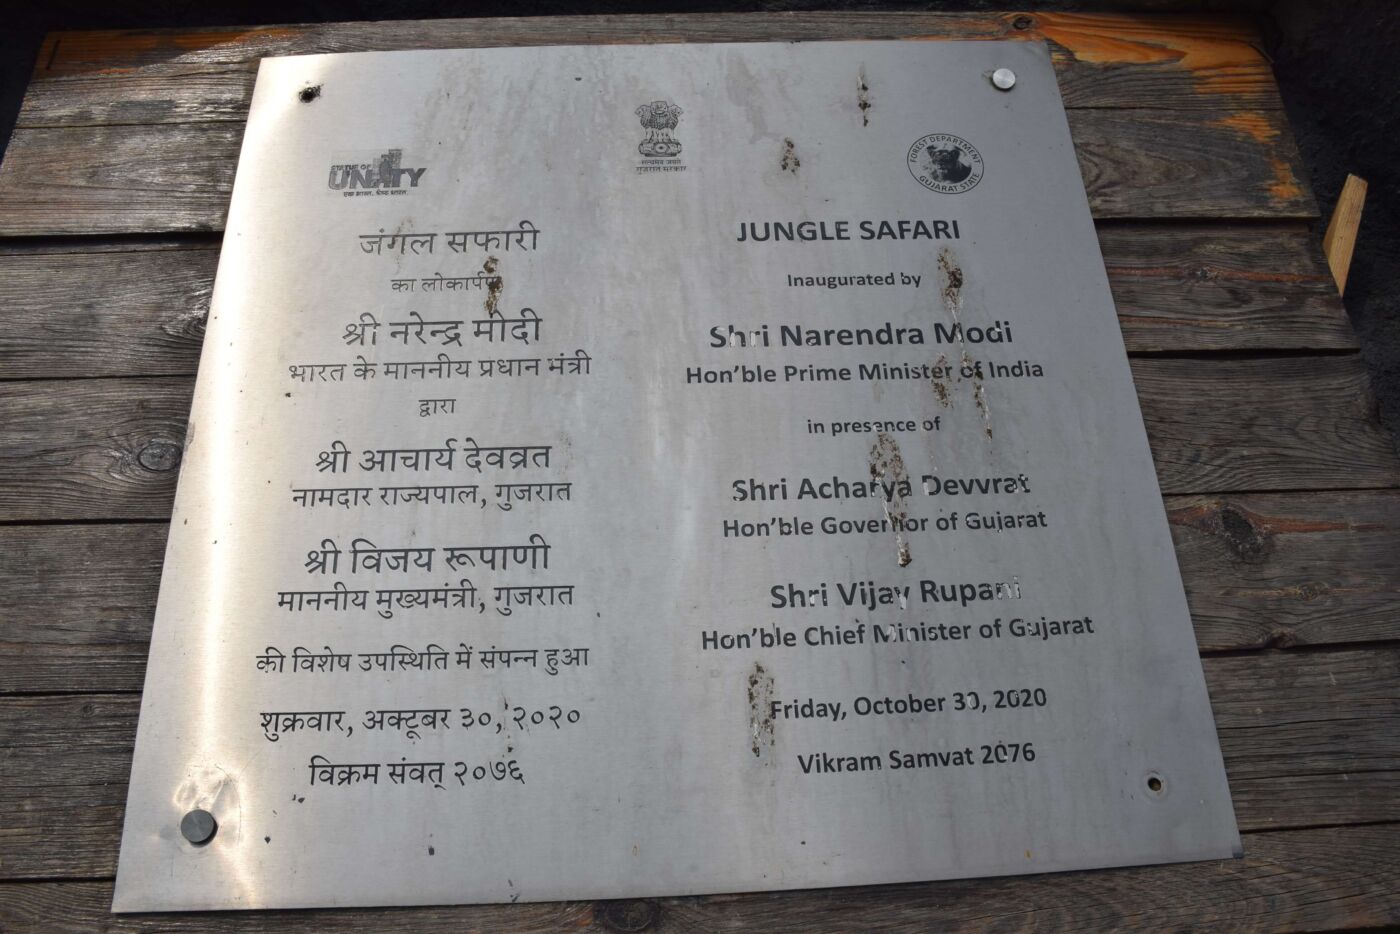 STATUE OF
UNITY
एक भारत, श्रेष्ठ भारत.
सत्यमेव जयते
ગુજરાત સરકાર
FOREST DEPARTMENT
GUJARAT STATE
जंगल सफारी
का लोकार्पण
श्री नरेन्द्र मोदी
भारत के माननीय प्रधान मंत्री
द्वारा
श्री आचार्य देवव्रत
नामदार राज्यपाल, गुजरात
श्री विजय रूपाणी
माननीय मुख्यमंत्री, गुजरात
की विशेष उपस्थिति में संपन्न हुआ
शुक्रवार, अक्टूबर ३०, २०२०
विक्रम संवत् २०७६
JUNGLE SAFARI
Inaugurated by
Shri Narendra Modi
Hon'ble Prime Minister of India
in presence of
Shri Acharya Devvrat
Hon'ble Governor of Gujarat
Shri Vijay Rupani
Hon'ble Chief Minister of Gujarat
Friday, October 30, 2020
Vikram Samvat 2076